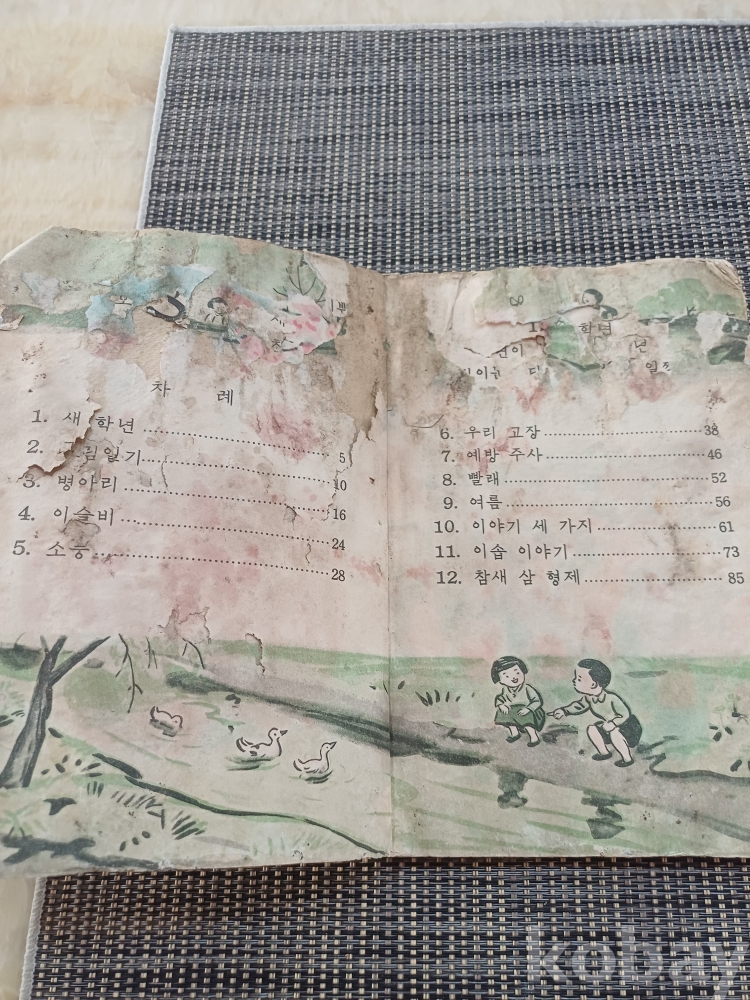 차 례
1. 새 학년 5
2. 그림일기 10
3. 병아리 16
4. 이슬비 24
5. 소풍 28
학년
6. 우리 고장 38
7. 예방 주사 46
8. 빨래 52
9. 여름 56
10. 이야기 세 가지 61
11. 이솝 이야기 73
12. 참새 삼 형제 85
kobay